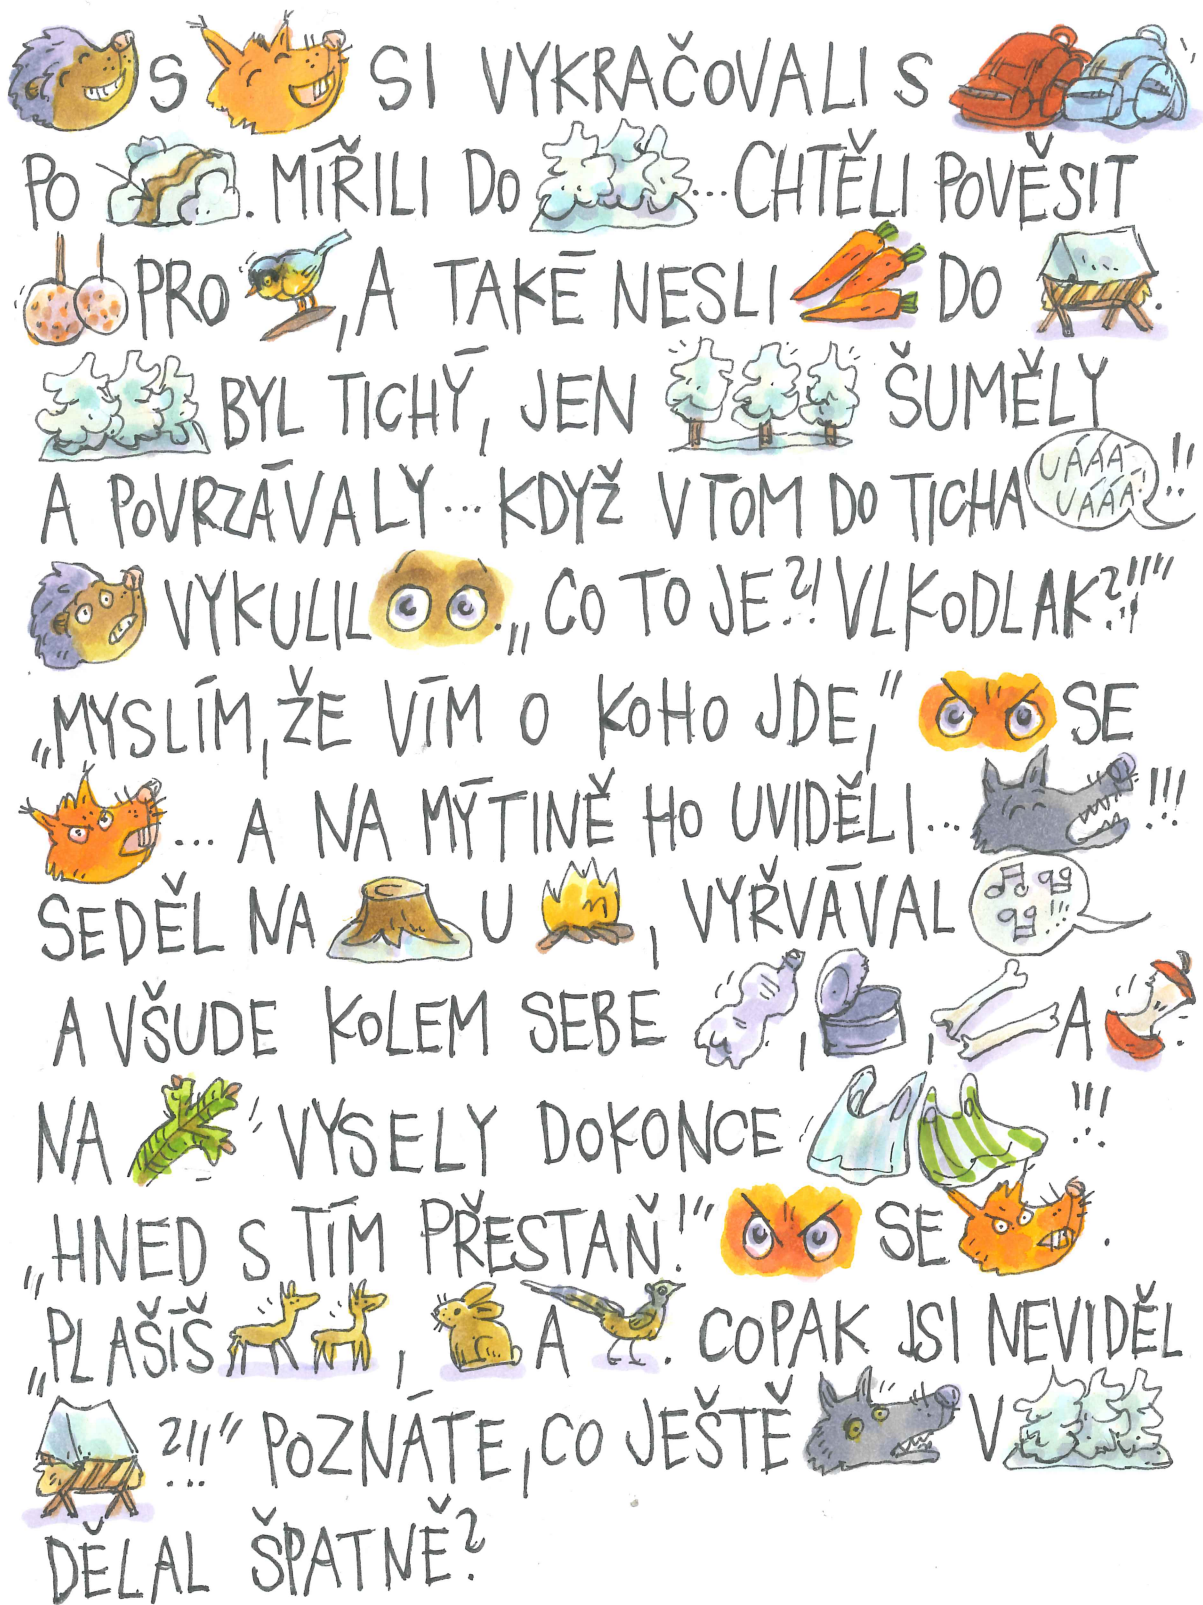 S SI VYKRAČOVALI S
PO . MÍŘILI DO ...CHTĚLI POVĚSIT
PRO , A TAKÉ NESLI DO .
BYL TICHÝ, JEN ŠUMĚLY
A POVRZÁVALY... KDYŽ VTOM DO TICHA UÁÁÁ- UÁÁÁ!!!
VYKULIL . „CO TO JE?! VLKODLAK?!!"
„MYSLÍM, ŽE VÍM O KOHO JDE," SE
... A NA MÝTINĚ HO UVIDĚLI... !!!
SEDĚL NA U , VYŘVÁVAL !!!
A VŠUDE KOLEM SEBE , , A .
NA VYSELY DOKONCE !!!
„HNED S TÍM PŘESTAŇ!" SE .
„PLAŠÍŠ , A . COPAK JSI NEVIDĚL
?!!" POZNÁTE, CO JEŠTĚ V
DĚLAL ŠPATNĚ?